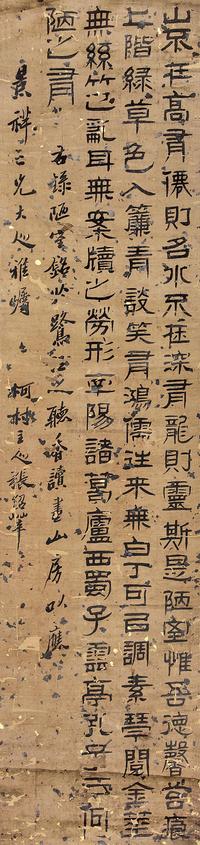 山不在高有僊則名水不在深有龍則靈斯是陋室惟吾德馨苔痕
上階綠草色入簾青談笑有鴻儒往來無白丁可以調素琴閱金經
無絲竹之亂耳無案牘之勞形南陽諸葛廬西蜀子雲亭孔子云何
陋之有 右錄陋室銘於鷺江之聽香讀畫山房以應
景祥三兄大人雅囑 主人張紹